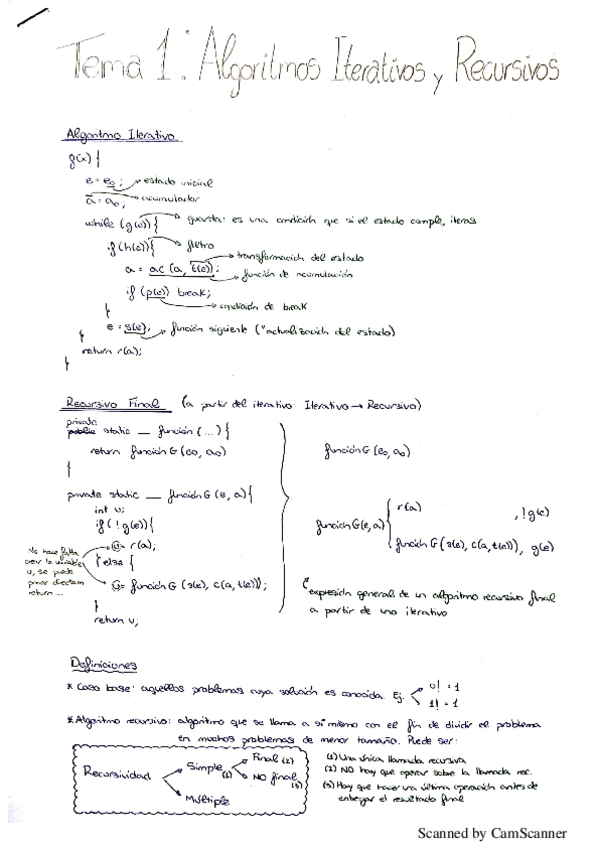 Tema 1: Algoritmos Iterativos y Recursivos
Algoritmo Iterativo
g(x) {
e = e₀; estado inicial
a = a₀, acumulador
while (g(e)) { guarda: es una condición que si el estado cumple, iteras
if (h(e)) { filtro
transformación del estado
a = ac (a, t(e));
función de acumulación
if (p(e)) break;
condición de break
}
e = s(e); función siguiente ("actualización del estado)
}
return r(a);
}
Recursivo Final (a partir del iterativo Iterativo → Recursivo)
private
public static __ función (...) {
return función G (e0, a0)
}
función G (e0, a0)
private static __ función G (e, a) {
int v;
if (!g(e)) {
v = r(a);
} else {
v = función G (s(e), c(a, t(e)));
}
return v;
No hace falta
usar la variable
v, se puede
poner directam
return ...
función G(e, a)
r(a) , !g(e)
función G (s(e), c(a, t(e))), g(e)
expresión general de un algoritmo recursivo final
a partir de uno iterativo
Definiciones
* Caso base: aquellos problemas cuya solución es conocida. Ej.
0! = 1
1! = 1
* Algoritmo recursivo: algoritmo que se llama a sí mismo con el fin de dividir el problema
en muchos problemas de menor tamaño. Puede ser:
Recursividad
Simple (1)
Final (2)
NO final (3)
Múltiple
(1) Una única llamada recursiva
(2) NO hay que operar sobre la llamada rec.
(3) Hay que hacer una última operación antes de
entregar el resultado final
Scanned by CamScanner